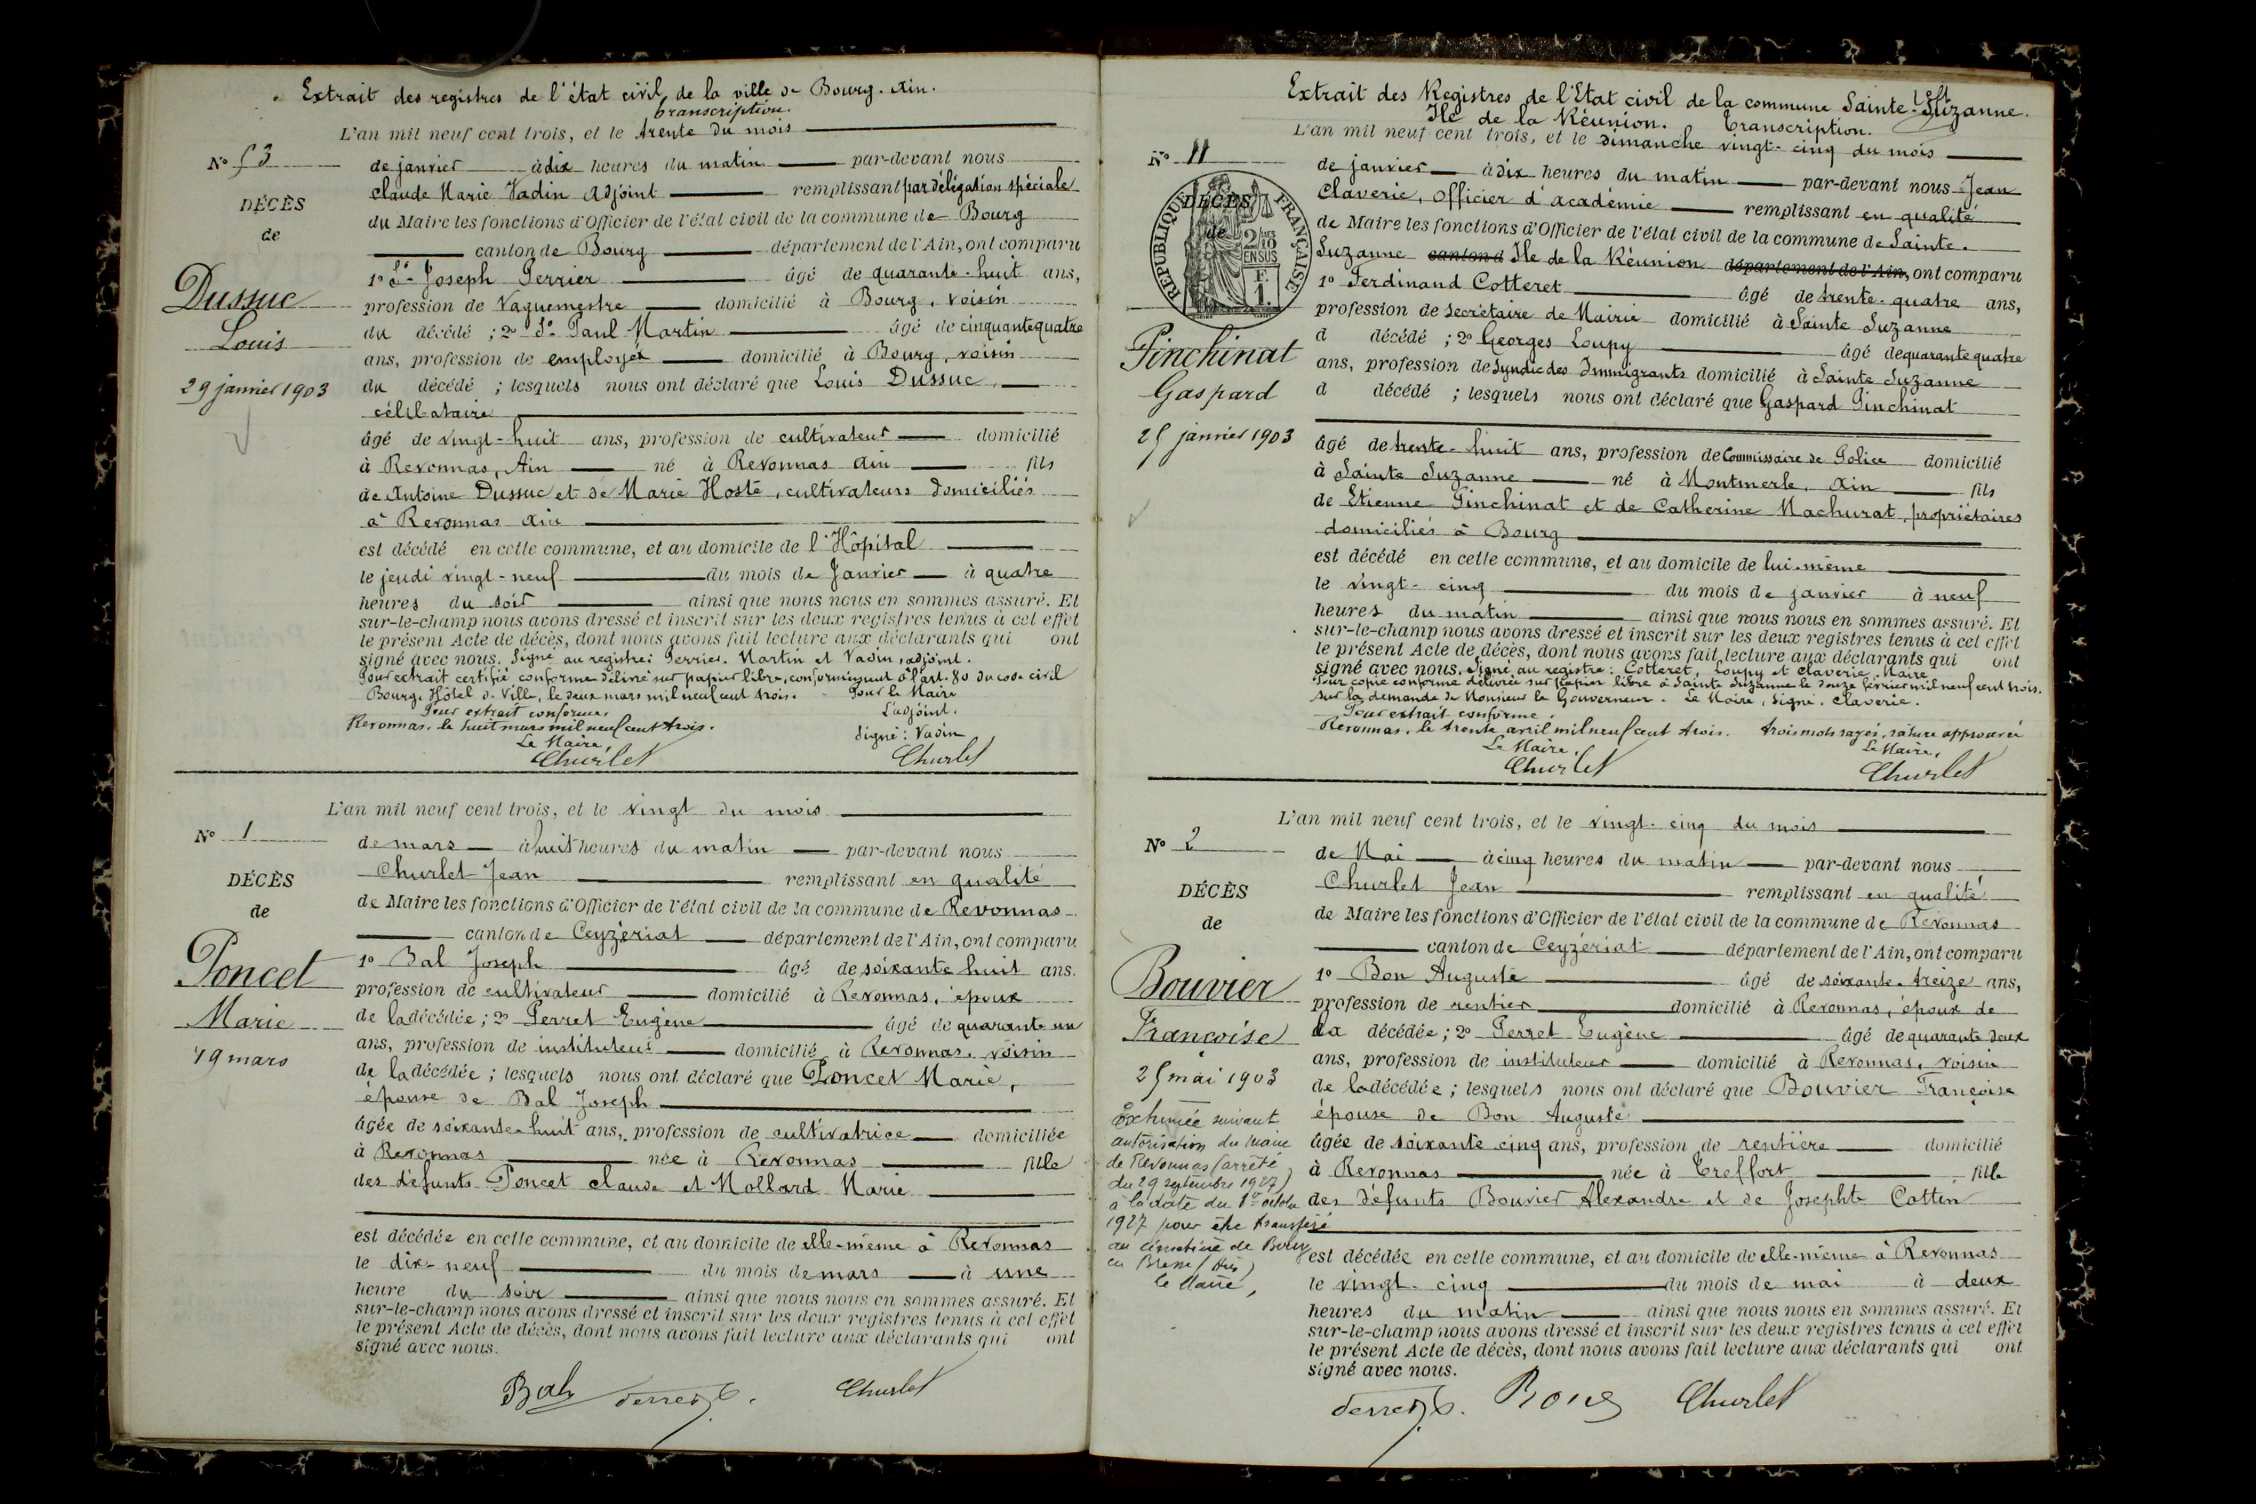 Extrait des registres de l'état civil de la ville de Bourg. Ain.
transcription.
L'an mil neuf cent trois, et le trente du mois
N° 53
de janvier à dix heures du matin par-devant nous
Claude Marie Vadin adjoint remplissant par délégation spéciale
DÉCÈS
du Maire les fonctions d'Officier de l'état civil de la commune de Bourg
de
canton de Bourg département de l'Ain, ont comparu
1° Sr Joseph Perrier âgé de quarante-huit ans,
Dussuc
profession de Vaguemestre domicilié à Bourg, voisin
Louis
du décédé ; 2° Sr Paul Martin âgé de cinquante quatre
ans, profession de employé domicilié à Bourg, voisin
29 janvier 1903
du décédé ; lesquels nous ont déclaré que Louis Dussuc,
célibataire
âgé de vingt-huit ans, profession de cultivateur domicilié
à Revonnas, Ain né à Revonnas Ain fils
de Antoine Dussuc et de Marie Hoste, cultivateurs domiciliés
à Revonnas Ain
est décédé en cette commune, et au domicile de l'Hôpital
le jeudi vingt-neuf du mois de Janvier à quatre
heures du soir ainsi que nous nous en sommes assuré. Et
sur-le-champ nous avons dressé et inscrit sur les deux registres tenus à cet effet
le présent Acte de décès, dont nous avons fait lecture aux déclarants qui ont
signé avec nous. Signé au registre: Perrier. Martin et Vadin, adjoint.
Pour extrait certifié conforme délivré sur papier libre, conformément à l'art. 80 du code civil
Bourg. Hôtel de Ville, le deux mars mil neuf cent trois. Pour le Maire
Pour extrait conforme, L'adjoint.
Revonnas, le huit mars mil neuf cent trois. Signé: Vadin
Le Maire,
Churlet Churlet
L'an mil neuf cent trois, et le vingt du mois
N° 1
de mars à huit heures du matin par-devant nous
Churlet Jean remplissant en qualité
DÉCÈS
de Maire les fonctions d'Officier de l'état civil de la commune de Revonnas
de
canton de Ceyzériat département de l'Ain, ont comparu
1° Bal Joseph âgé de soixante huit ans.
Poncet
profession de cultivateur domicilié à Revonnas, époux
Marie
de la décédée ; 2° Perret Eugène âgé de quarante un
ans, profession de instituteur domicilié à Revonnas, voisin
19 mars
de la décédée ; lesquels nous ont déclaré que Poncet Marie,
épouse de Bal Joseph
âgée de soixante-huit ans, profession de cultivatrice domiciliée
à Revonnas née à Revonnas fille
des défunts Poncet Claude et Mollard Marie
est décédée en cette commune, et au domicile de elle-même à Revonnas
le dix-neuf du mois de mars à une
heure du soir ainsi que nous nous en sommes assuré. Et
sur-le-champ nous avons dressé et inscrit sur les deux registres tenus à cet effet
le présent Acte de décès, dont nous avons fait lecture aux déclarants qui ont
signé avec nous.
Bal Perret E. Churlet
Extrait des Registres de l'Etat civil de la commune Sainte-Suzanne.
Ile de la Réunion. Transcription.
L'an mil neuf cent trois, et le dimanche vingt-cinq du mois
N° 11
de janvier à dix heures du matin par-devant nous Jean
Claverie, Officier d'académie remplissant en qualité
DÉCÈS
de
RÉPUBLIQUE FRANÇAISE
2/10 EN SUS
F.
1.
de Maire les fonctions d'Officier de l'état civil de la commune de Sainte-
Suzanne canton d Ile de la Réunion département de l'Ain, ont comparu
1° Ferdinand Cotteret âgé de trente-quatre ans,
profession de Secrétaire de Mairie domicilié à Sainte Suzanne
Pinchinat
d décédé ; 2° Georges Loupy âgé de quarante quatre
ans, profession de Syndic des Immigrants domicilié à Sainte Suzanne
Gaspard
d décédé ; lesquels nous ont déclaré que Gaspard Pinchinat
25 janvier 1903
âgé de trente-huit ans, profession de Commissaire de Police domicilié
à Sainte Suzanne né à Montmerle, Ain fils
de Etienne Pinchinat et de Catherine Machurat, propriétaires
domiciliés à Bourg
est décédé en cette commune, et au domicile de lui-même
le vingt-cinq du mois de janvier à neuf
heures du matin ainsi que nous nous en sommes assuré. Et
sur-le-champ nous avons dressé et inscrit sur les deux registres tenus à cet effet
le présent Acte de décès, dont nous avons fait lecture aux déclarants qui ont
signé avec nous. Signé au registre: Cotteret, Loupy et Claverie, Maire
Pour copie conforme délivrée sur papier libre à Sainte Suzanne le douze février mil neuf cent trois.
sur la demande de Monsieur le Gouverneur. Le Maire, signé. Claverie.
Pour extrait conforme.
Revonnas, le trente avril mil neuf cent trois. trois mots rayés, rature approuvée
Le Maire, Le Maire,
Churlet Churlet
L'an mil neuf cent trois, et le vingt-cinq du mois
N° 2
de Mai à cinq heures du matin par-devant nous
Churlet Jean remplissant en qualité
DÉCÈS
de Maire les fonctions d'Officier de l'état civil de la commune de Revonnas
de
canton de Ceyzériat département de l'Ain, ont comparu
1° Bon Auguste âgé de soixante-treize ans,
Bouvier
profession de rentier domicilié à Revonnas, époux de
Françoise
la décédée ; 2° Perret Eugène âgé de quarante deux
ans, profession de instituteur domicilié à Revonnas, voisin
25 mai 1903
de la décédée ; lesquels nous ont déclaré que Bouvier Françoise
épouse de Bon Auguste
âgée de soixante cinq ans, profession de rentière domicilié
à Revonnas née à Treffort fille
des défunts Bouvier Alexandre et de Josephte Cottin
Exhumée suivant
autorisation du Maire
de Revonnas (arrêté
du 29 septembre 1927)
à la date du 1er octobre
1927 pour être transféré
au cimetière de Bourg
en Bresse (Ain)
le Maire,
est décédée en cette commune, et au domicile de elle-même à Revonnas
le vingt-cinq du mois de mai à deux
heures du matin ainsi que nous nous en sommes assuré. Et
sur-le-champ nous avons dressé et inscrit sur les deux registres tenus à cet effet
le présent Acte de décès, dont nous avons fait lecture aux déclarants qui ont
signé avec nous.
Perret E. Bon Churlet